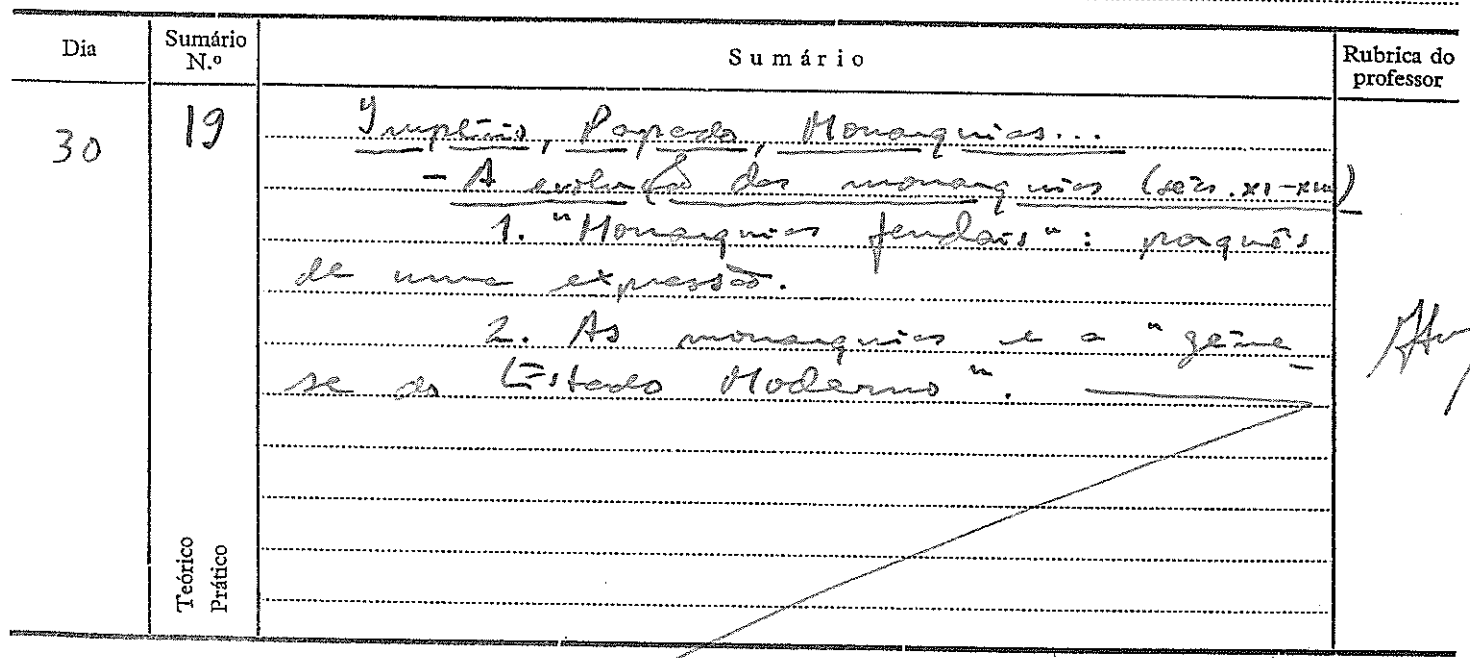 Dia Sumário N.º Sumário Rubrica do professor
30 19 Império, Papado, Monarquias...
- A evolução das monarquias (sécs. XI-XIII)
1. "Monarquias feudais": porquês
de uma expressão.
2. As monarquias e a "géne-
se do Estado Moderno".
Teórico
Prático